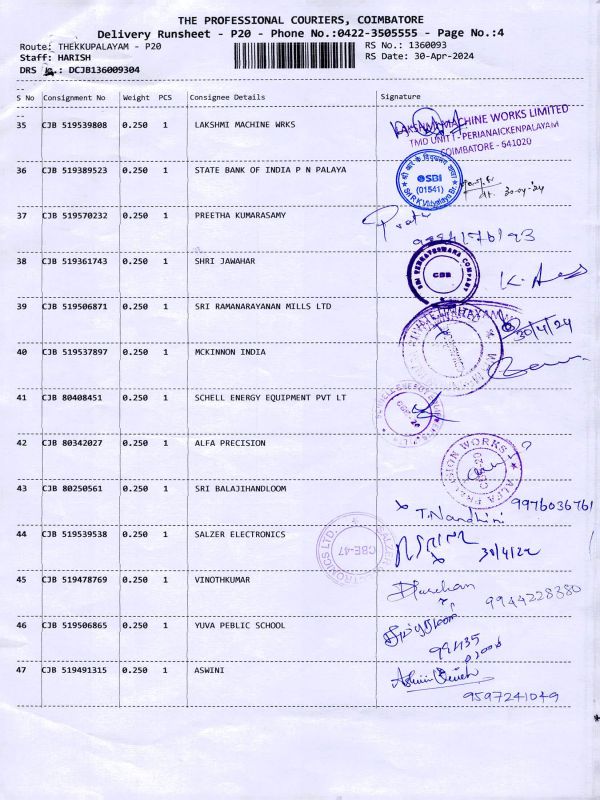 THE PROFESSIONAL COURIERS, COIMBATORE
Delivery Runsheet - P20 - Phone No.:0422-3505555 - Page No.:4
Route: THEKKUPALAYAM - P20 RS No.: 1360093
Staff: HARISH RS Date: 30-Apr-2024
DRS .: DCJB136009304
S No Consignment No Weight PCS Consignee Details Signature
35 CJB 519539808 0.250 1 LAKSHMI MACHINE WRKS
LAKSHMI MACHINE WORKS LIMITED
TMD UNIT I - PERIANAICKENPALAYAM
COIMBATORE - 641020
36 CJB 519389523 0.250 1 STATE BANK OF INDIA P N PALAYA
SBI
(01541)
30-04-24
37 CJB 519570232 0.250 1 PREETHA KUMARASAMY
38 CJB 519361743 0.250 1 SHRI JAWAHAR
SRI VENKATESWARA COMPANY
CBE
39 CJB 519506871 0.250 1 SRI RAMANARAYAN MILLS LTD
30/4/24
40 CJB 519537897 0.250 1 MCKINNON INDIA
41 CJB 80408451 0.250 1 SCHELL ENERGY EQUIPMENT PVT LT
42 CJB 80342027 0.250 1 ALFA PRECISION
ALFA PRECISION WORKS
43 CJB 80250561 0.250 1 SRI BALAJIHANDLOOM
T. Nandhini 9976036761
44 CJB 519539538 0.250 1 SALZER ELECTRONICS
SALZER ELECTRONICS LTD.
CBE-47
45 CJB 519478769 0.250 1 VINOTHKUMAR
9944228380
46 CJB 519506865 0.250 1 YUVA PEBLIC SCHOOL
47 CJB 519491315 0.250 1 ASWINI
9597241049